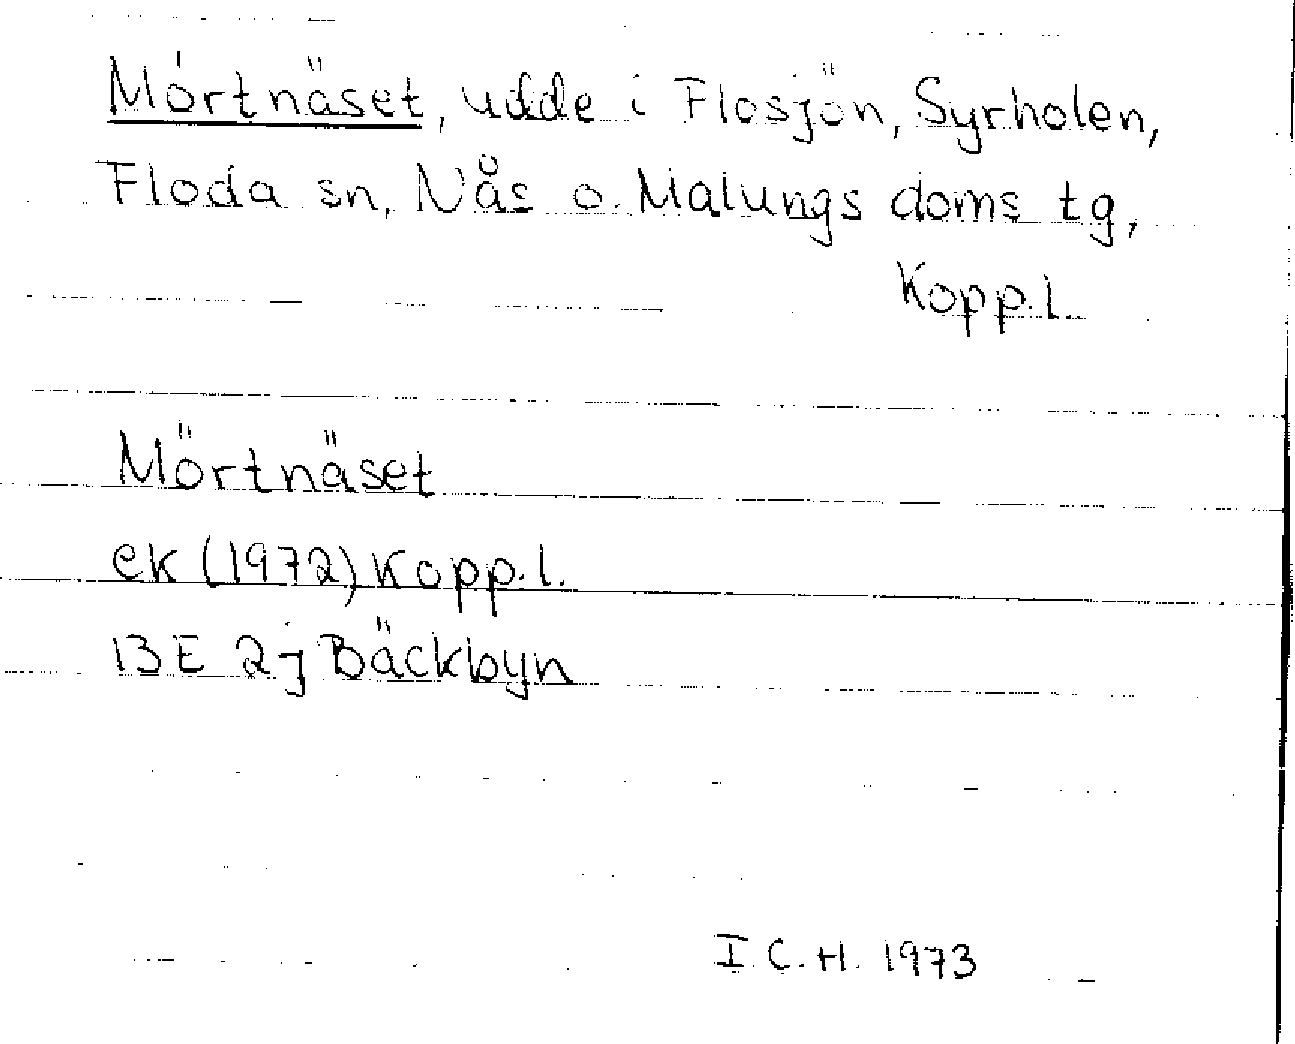 Mörtnäset, udde i Flosjön, Syrholen,
Floda sn, Nås o. Malungs doms tg,
Kopp.l.
Mörtnäset
ek (1972) Kopp.l.
13E 2j Bäckbyn
I.C.H. 1973